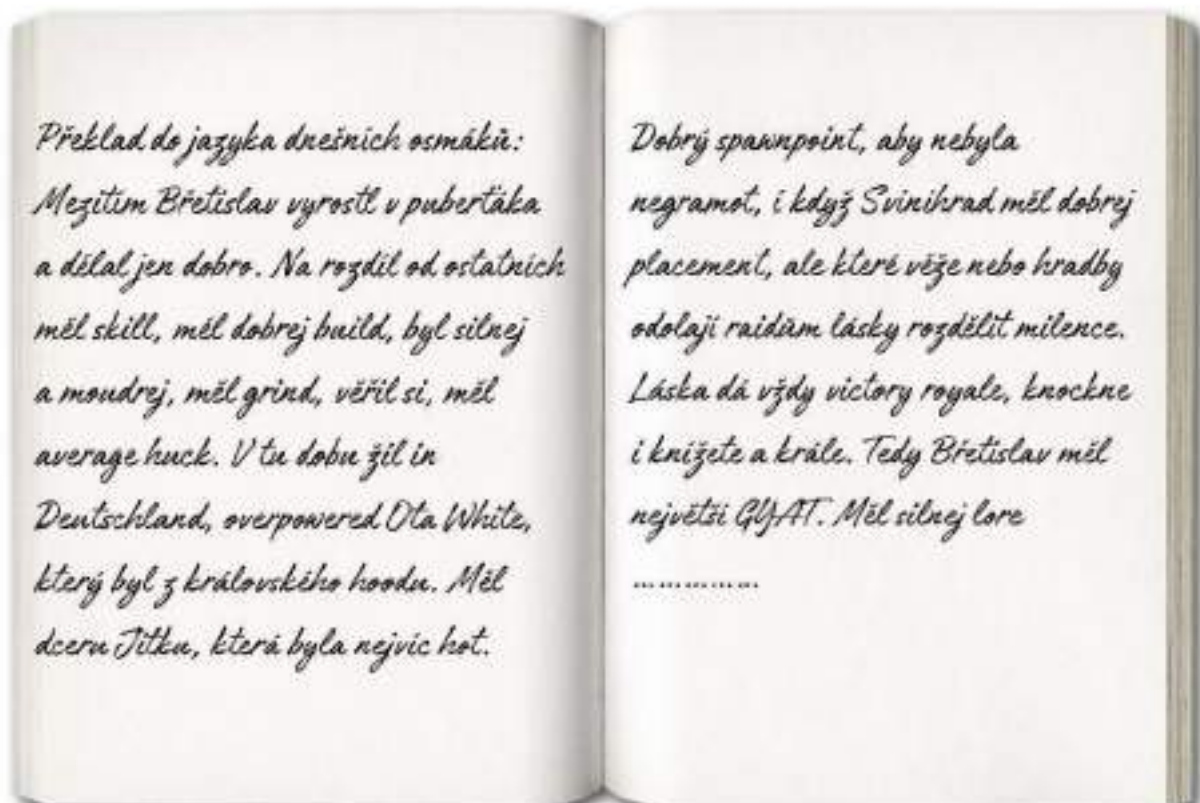 Překlad do jazyka dnešních osmáků:
Mezitím Břetislav vyrostl v puberťáka
a dělal jen dobro. Na rozdíl od ostatních
měl skill, měl dobrej build, byl silnej
a moudrej, měl grind, věřil si, měl
average huck. V tu dobu žil in
Deutschland, overpowered Ota White,
který byl z královského hoodu. Měl
dceru Jitku, která byla nejvíc hot.
Dobrý spawnpoint, aby nebyla
negramot, i když Svinihrad měl dobrej
placement, ale které věže nebo hradby
odolají raidům lásky rozdělit milence.
Láska dá vždy victory royale, knockne
i knížete a krále. Tedy Břetislav měl
největší GYAT. Měl silnej lore
... ... ... ... ...